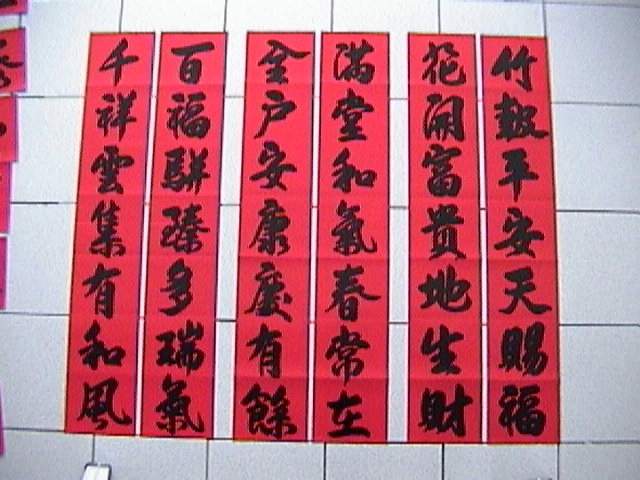 竹報平安天賜福
花開富貴地生財
滿堂和氣春常在
全戶安康慶有餘
百福駢臻多瑞氣
千祥雲集有和風